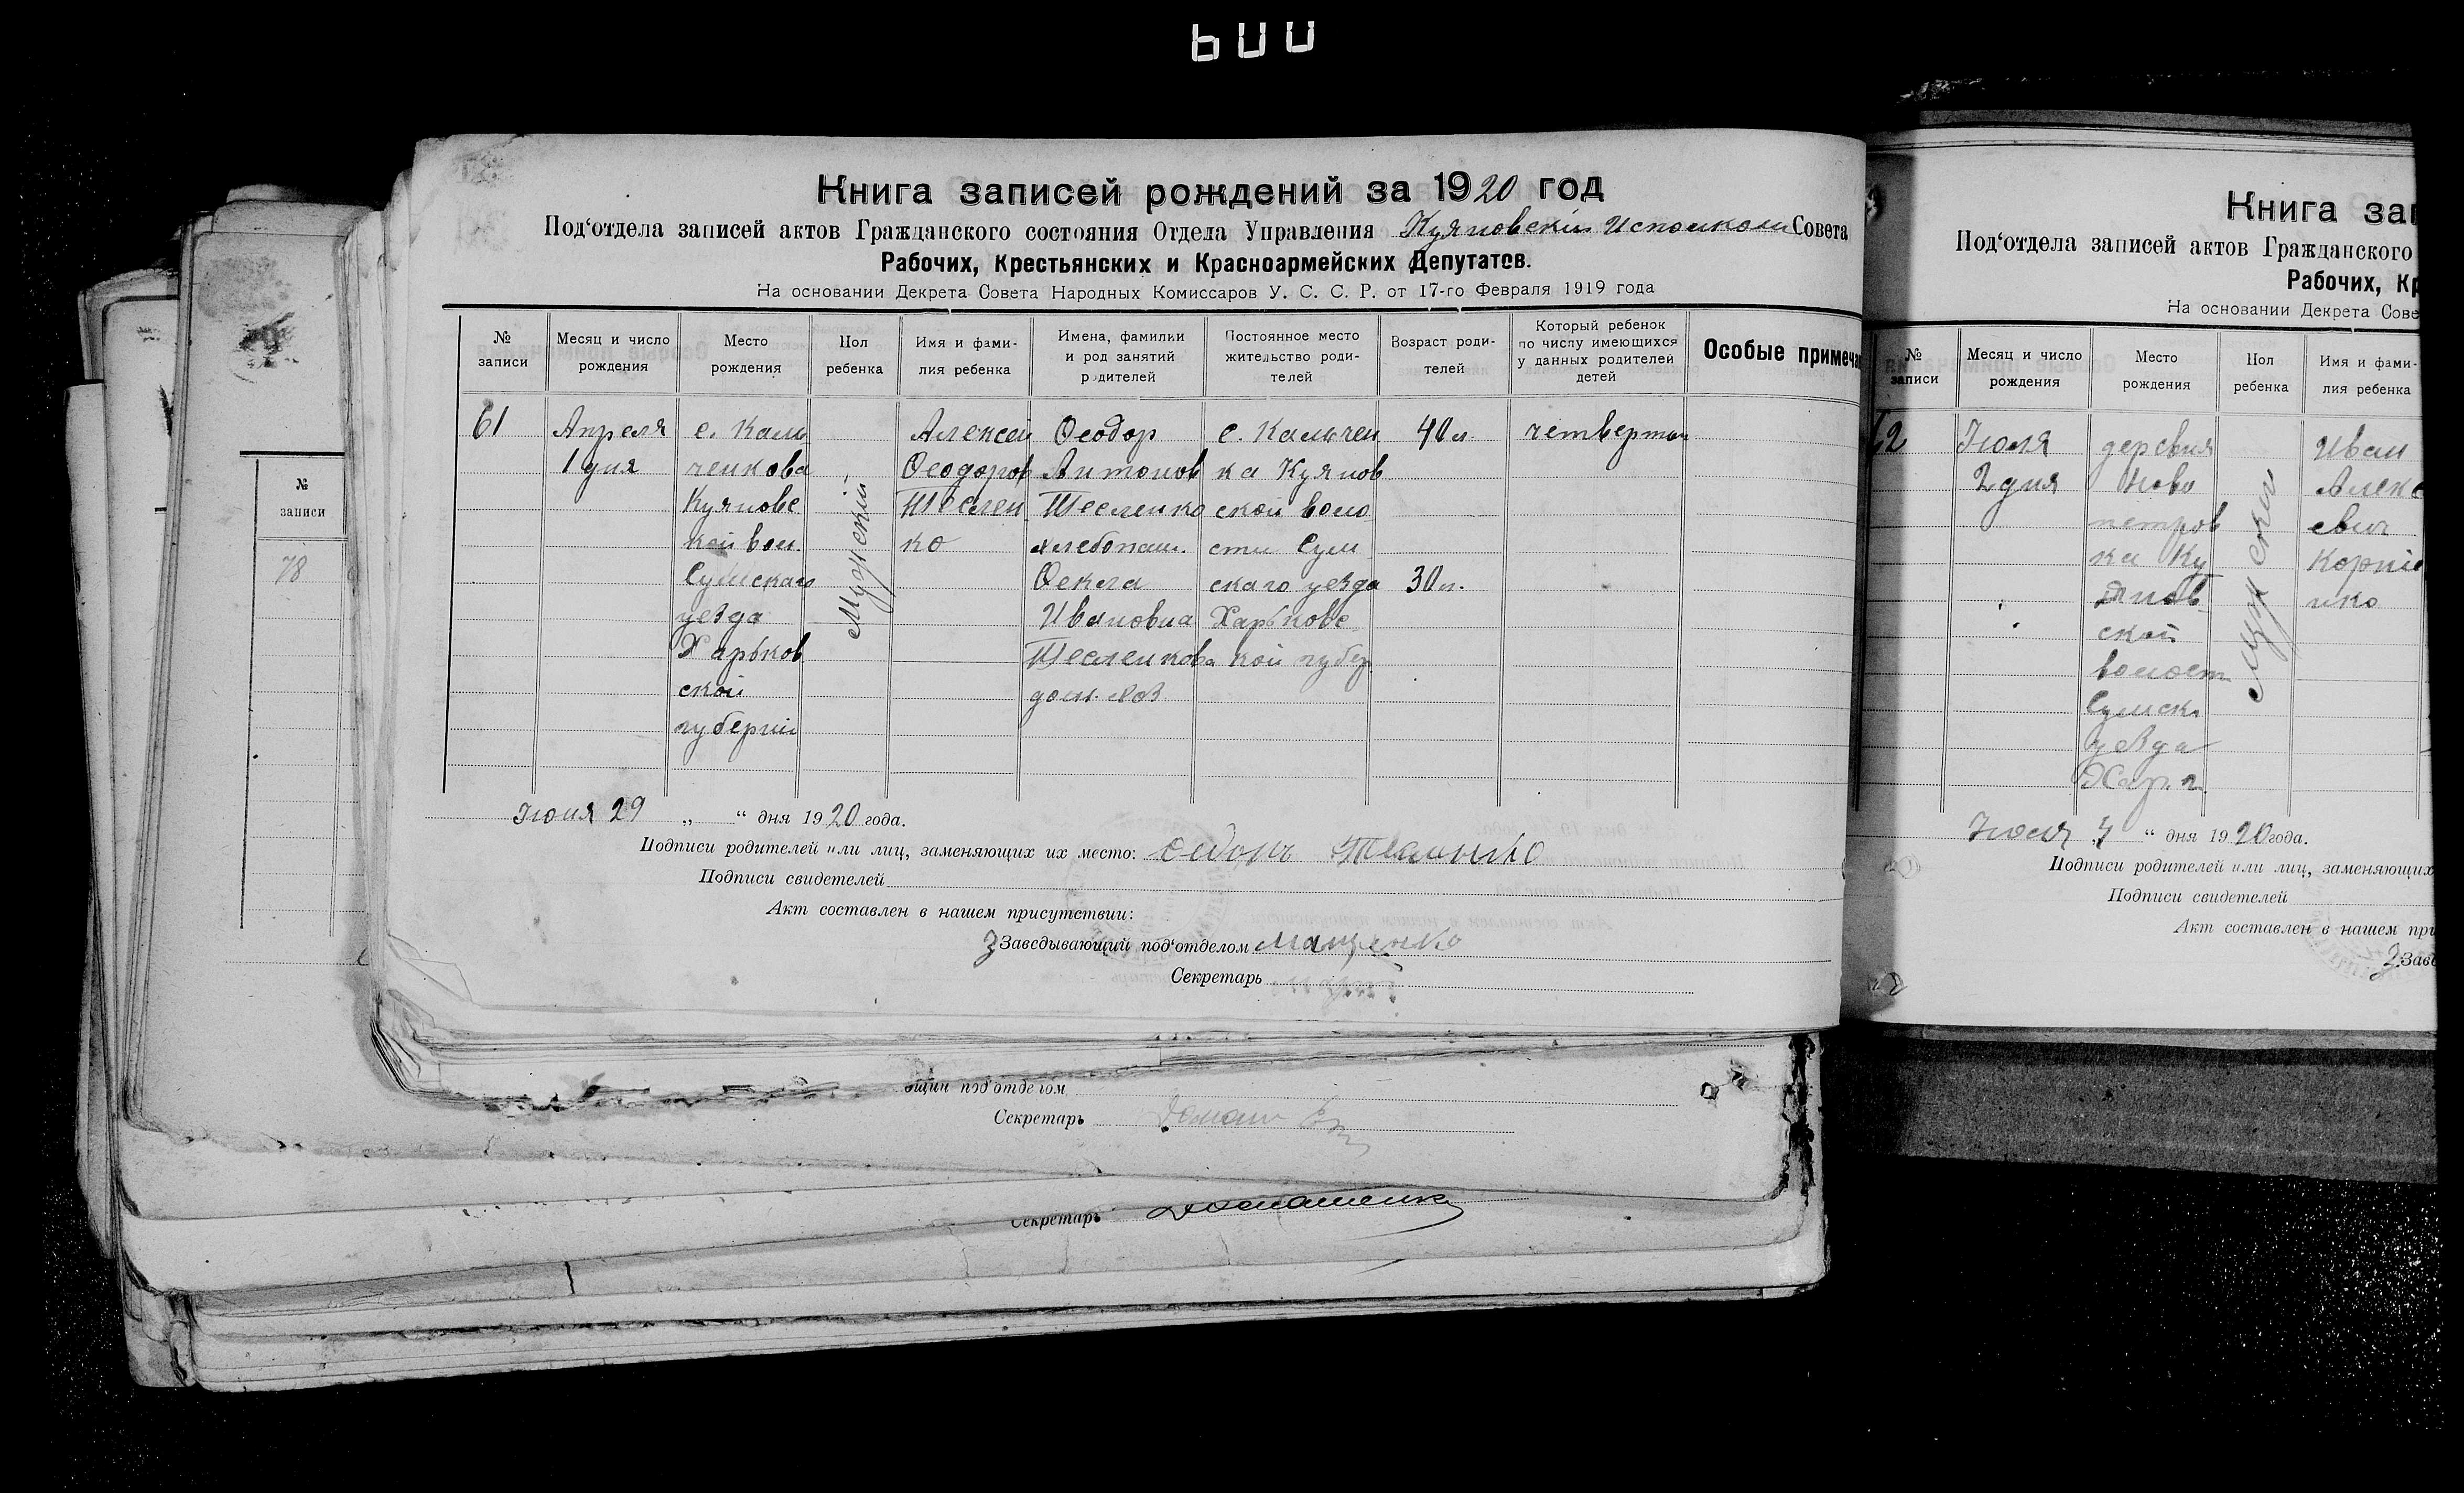 600
Книга записей рождений за 1920 год
Под‘отдела записей актов Гражданского состояния Отдела Управления Куяновскій Исполком Совета
Рабочих, Крестьянских и Красноармейских Депутатов.
На основании Декрета Совета Народных Комиссаров У. С. С. Р. от 17-го Февраля 1919 года
№ записи
Месяц и число рождения
Место рождения
Пол ребенка
Имя и фами-
лия ребенка
Имена, фамилии
и род занятий
родителей
Постоянное место
жительство роди-
телей
Возраст роди-
телей
Который ребенок
по числу имеющихся
у данных родителей
детей
Особые примеча
61
Апреля
1 дня
с. Каль
ченкова
Куяновс
кой вол.
Сумскаго
уезда
Харьков
ской
губерніи
Мужескій
Алексей
Ѳеодоров
Теслен
ко
Ѳеодор
Антонов
Тесленко
хлебопаш.
Ѳекла
Ивановна
Тесленкова
дом. хоз
с. Кальчен
ка Куянов
ской воло
сти Сум
скаго уезда
Харьковс
кой губер
40 л.
30 л.
четвертый
Июня 29 „ “ дня 1920 года.
Подписи родителей или лиц, заменяющих их место:
Подписи свидетелей
Акт составлен в нашем присутствии:
З Заведывающий под‘отделом Мащенко
Секретарь
№
записи
78
ощий под‘отделом
Секретарь
Секретарь Домашенко
Книга зап
Под‘отдела записей актов Гражданского
Рабочих, Кр
На основании Декрета Сове
№
записи
Месяц и число
рождения
Место
рождения
Пол
ребенка
Имя и фами-
лия ребенка
62
Июля
2 дня
деревня
Ново
петров
ка Ку
янов
ской
волост
Сумск
уезда
Хар. г.
Мужеский
Иван
Алекс
евич
Корніе
нко
Июля 4 “ дня 1920 года.
Подписи родителей или лиц, заменяющих
Подписи свидетелей
Акт составлен в нашем при
З. Заве